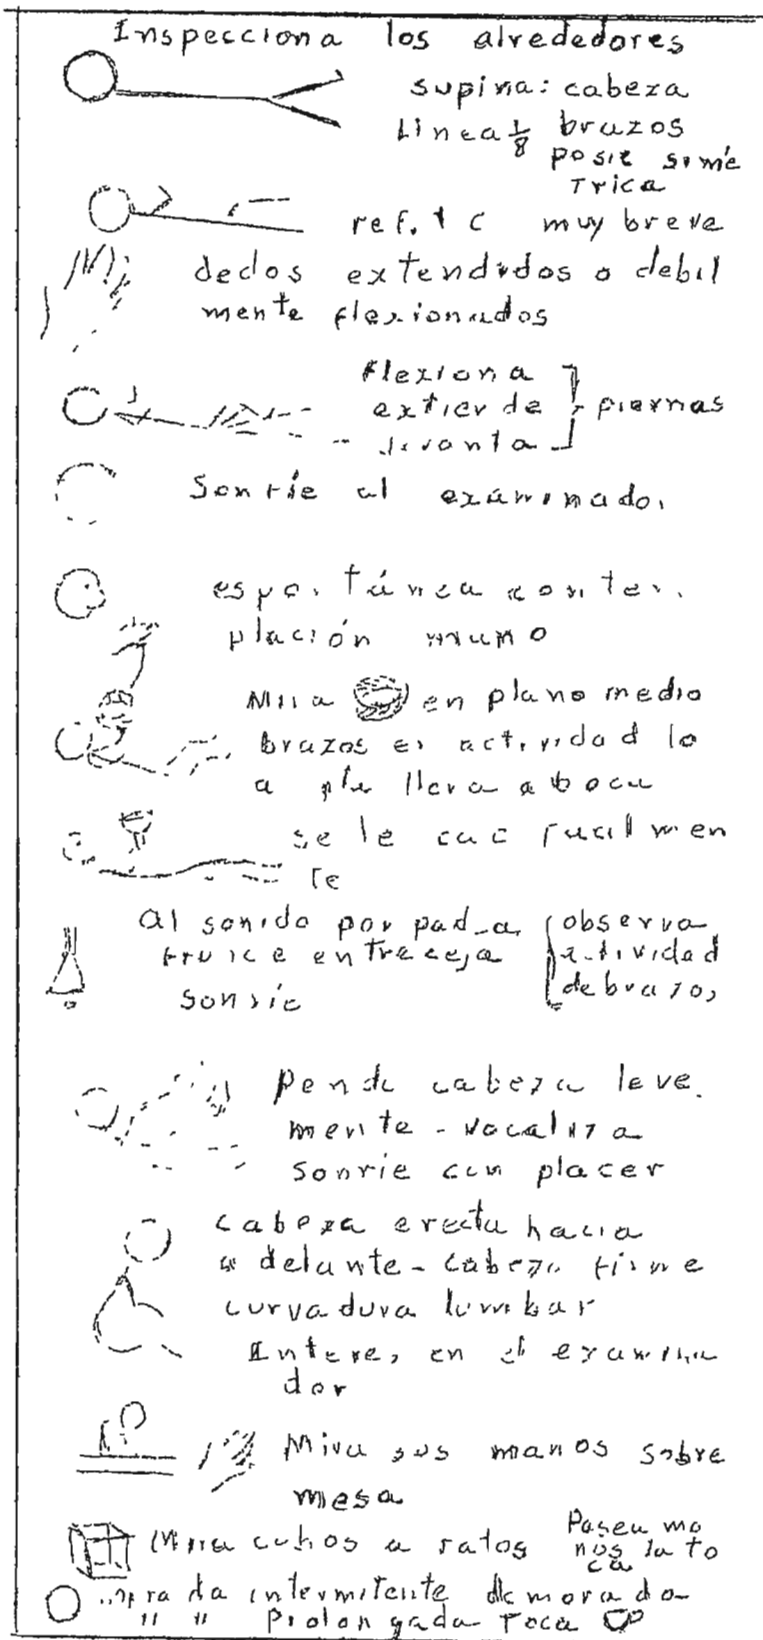 Inspecciona los alrededores
supina: cabeza
Linea 1/8 brazos
posic simé
trica
ref. t c muy breve
dedos extendidos o debil
mente flexionados
flexiona
extiende piernas
levanta
Sonríe al examinado.
espontánea contem
plación mano
Mira en plano medio
brazos en actividad lo
a lleva a boca
se le cae facilmen
te
Al sonido
frunce entreceja
sonríe
observa
actividad
de brazos
Pende cabeza leve.
mente - vocaliza
sonrie con placer
cabeza erecta hacia
adelante - cabeza firme
curvadura lumbar
Interes en el examina
dor
Mira sus manos sobre
mesa
Mira cubos a ratos
Pasea ma
nos la to
ca
mirada intermitente demorada
" " Prolongada Toca